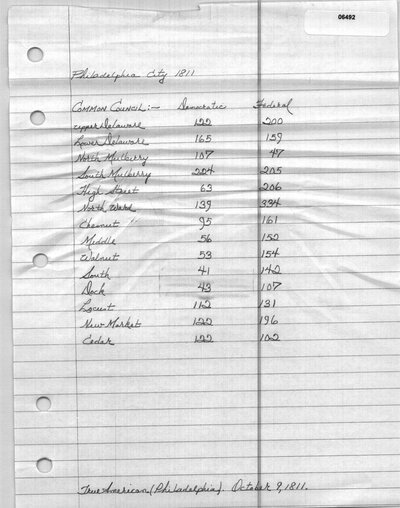 06492
Philadelphia City 1811
Common Council:- Democratic Federal
Upper Delaware 122 200
Lower Delaware 165 159
North Mulberry 107 47
South Mulberry 224 205
High Street 63 206
North Ward 139 334
Chesnut " 95 161
Middle 56 152
Walnut 53 154
South 41 142
Dock 43 107
Locust 112 131
New Market 122 196
Cedar 122 102
True American (Philadelphia). October 9, 1811.